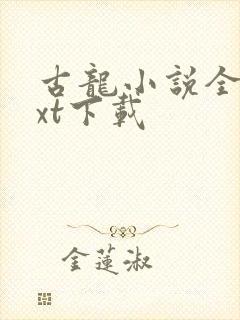 古龍小說全
xt下載
金蓮淑